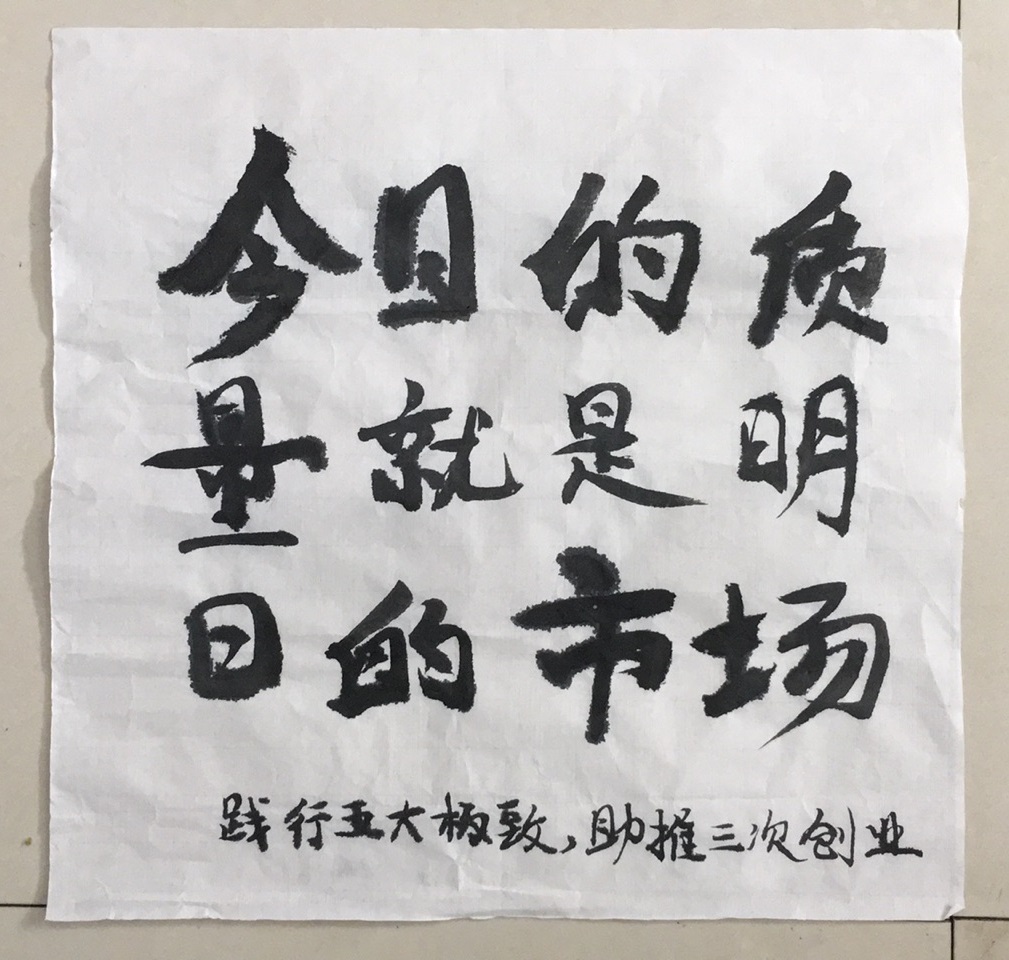 今日的质
量就是明
日的市场
践行五大极致,助推三次创业